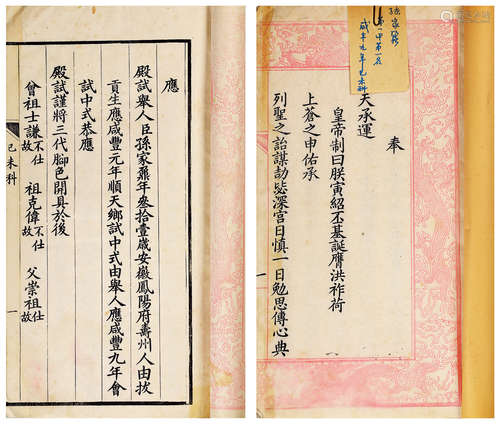 應
殿試舉人臣孫家鼐年叁拾壹歲安徽鳳陽府壽州人由拔
貢生應咸豐元年順天鄉試中式由舉人應咸豐九年會
試中式恭應
殿試謹將三代腳色開具於後
曾祖士謙不仕故 祖克偉不仕故 父崇祖仕故
己未科
一
孫家鼐
第一甲第一名
咸丰九年己未科
奉
天承運
皇帝制曰朕寅紹丕基誕膺洪祚荷
上蒼之申佑承
列聖之詒謀劼毖深宮日慎一日勉思傳心典
一